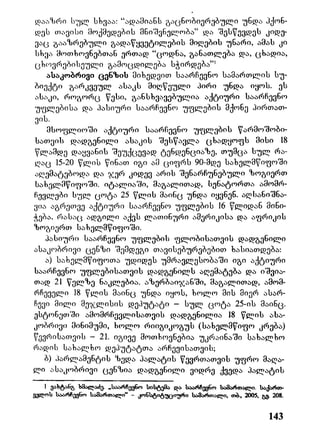 დაამრი სულ სხვაა: "ადამიანს გაცნობიერებული უნდა ჰქონ-
დეს თავისი მოქმედების მნიშვნელობა" და შესწევდეს კიდე-
ვაც გააზრებული გადაწყვეტილების მიღების უნარი, ამას კი
სხვა მოთხოვნებთან ერთად "ცოდნა, განათლება და, ცხადია,
ცხოვრებისეული გამოცდილება სჭირდება"¹
ასაკობრივი ცენზის მიხედვით საარჩევნო სამართლის სუ-
ბიექტი გარკვეულ ასაკს მიღწეული პირი უნდა იყოს. ეს
ასაკი, როგორც წესი, განსხვავებულია აქტიური საარჩევნო
უფლებისა და პასიური საარჩევნო უფლების მქონე პირთათ-
ვის.
მსოფლიოში აქტიური საარჩევნო უფლების წარმოშობი-
სათვის დადგენილი ასაკის შესწავლა ცხადყოფს მისი 18
წლამდე დაყვანის შეუქცევად ტენდენციაზე. თუმცა სულ რა-
ღაც 15-20 წლის წინათ იგი ამ ციფრს 90-მდე სახელმწიფოში
აღემატებოდა და ჯერ კიდევ არის შენარჩუნებული ზოგიერთ
სახელმწიფოში. იტალიაში, მაგალითად, სენატორთა ამომრ-
ჩევლები სულ ცოტა 25 წლის მაინც უნდა იყვნენ. აღსანიშნა-
ვია აგრეთვე აქტიური საარჩევნო უფლების 16 წლიდან მინი-
ჭება. რასაც ადგილი აქვს ლათინური ამერიკისა და აფრიკის
ზოგიერთ სახელმწიფოში.
პასიური საარჩევნო უფლების ფლობისათვის დადგენილი
ასაკობრივი ცენზი შემდეგი თავისებურებებით ხასიათდება:
ა) სახელმწიფოთა უდიდეს უმრავლესობაში იგი აქტიური
საარჩევნო უფლებისათვის დადგენილს აღემატება და იშვია-
თად 21 წელზე ნაკლებია. აზერბაიჯანში, მაგალითად, ამომ-
რჩეველი 18 წლის მაინც უნდა იყოს, ხოლო მის მიერ ასარ-
ჩევი მილი მეჯლისის დეპუტატი – სულ ცოტა 25-ის მაინც.
ესტონეთში ამომრჩევლისათვის დადგენილია 18 წლის ასა-
კობრივი მინიმუმი, ხოლო რიიგიკოგუს (სახელმწიფო კრება)
წევრისათვის – 21. იგივე მოთხოვნებია უკრაინაში სახალხო
რადის სახალხო დეპუტატთა არჩევისათვის;
ბ) პარლამენტის ზედა პალატის წევრთათვის უფრო მაღა-
ლი ასაკობრივი ცენზია დადგენილი ვიდრე ქვედა პალატის
1 ვახტანგ ხმალაძე. „საარჩევნო სისტემა და საარჩევნო სამართალი. საქართ-
ველოს საარჩევნო სამართალი" – კონსტიტუციური სამართალი, თბ., 2005, გვ. 208.
143